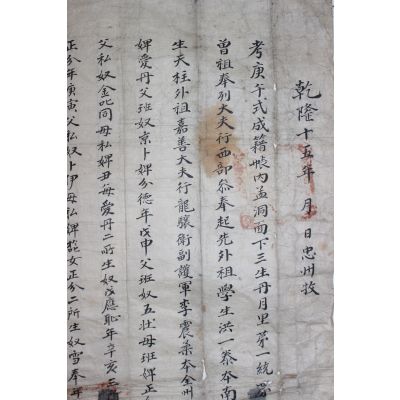 乾隆十五年 月 日忠州牧
考庚午式成籍帳內孟洞面下三生丹月里第一統
曾祖奉列大夫行西部叅奉起先外祖學生洪一叅本南
生天柱外祖嘉善大夫行龍驤衛副護軍李震柔本全州
婢愛丹父班奴京卜婢分德年戊申父班奴五壯母班婢正
父私奴金叱同母私婢丑每愛丹二所生奴應耻年辛亥
正分年庚寅父私奴卜甲母私婢女正分二所生奴雪奉年